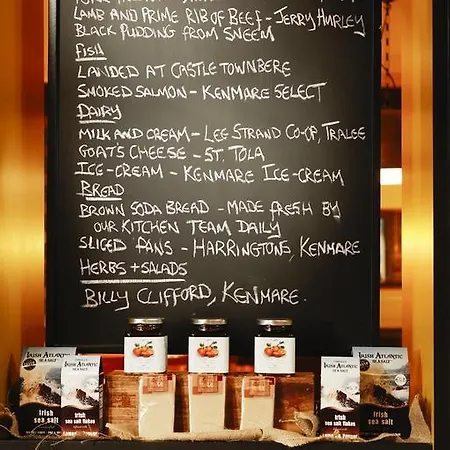 LAMB AND PRIME RIB OF BEEF - JERRY HURLEY
BLACK PUDDING FROM SNEEM
FISH
LANDED AT CASTLETOWNBERE
SMOKED SALMON - KENMARE SELECT
DAIRY
MILK AND CREAM - LEE STRAND CO-OP, TRALEE
GOAT'S CHEESE - ST. TOLA
ICE-CREAM - KENMARE ICE-CREAM
BREAD
BROWN SODA BREAD - MADE FRESH BY
OUR KITCHEN TEAM DAILY
SLICED PANS - HARRINGTONS, KENMARE
HERBS + SALADS
BILLY CLIFFORD, KENMARE
IRISH ATLANTIC
SEA SALT
irish
sea salt
IRISH ATLANTIC
SEA SALT
irish
sea salt flakes
IRISH ATLANTIC
SEA SALT
irish
sea salt flakes
IRISH ATLANTIC
SEA SALT
irish
sea salt